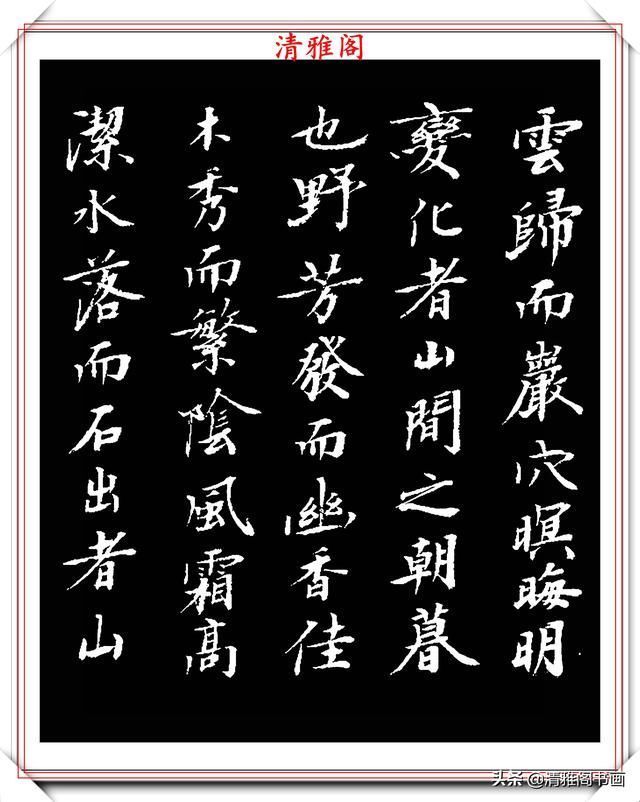 清雅阁
雲歸而巖穴暝晦明
變化者山間之朝暮
也野芳發而幽香佳
木秀而繁陰風霜高
潔水落而石出者山
头条@清雅阁书画